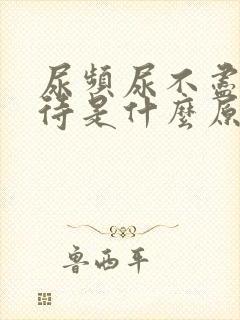 尿頻尿不盡
待是什麼原
魯西平